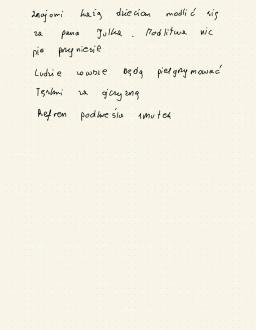 Znajomi każą dzieciom modlić się
za pana Julka. Modlitwa nic
nie przyniesie
Ludzie zawsze będą pielgrzymować
Tęskni za ojczyzną
Refren podkreśla smutek